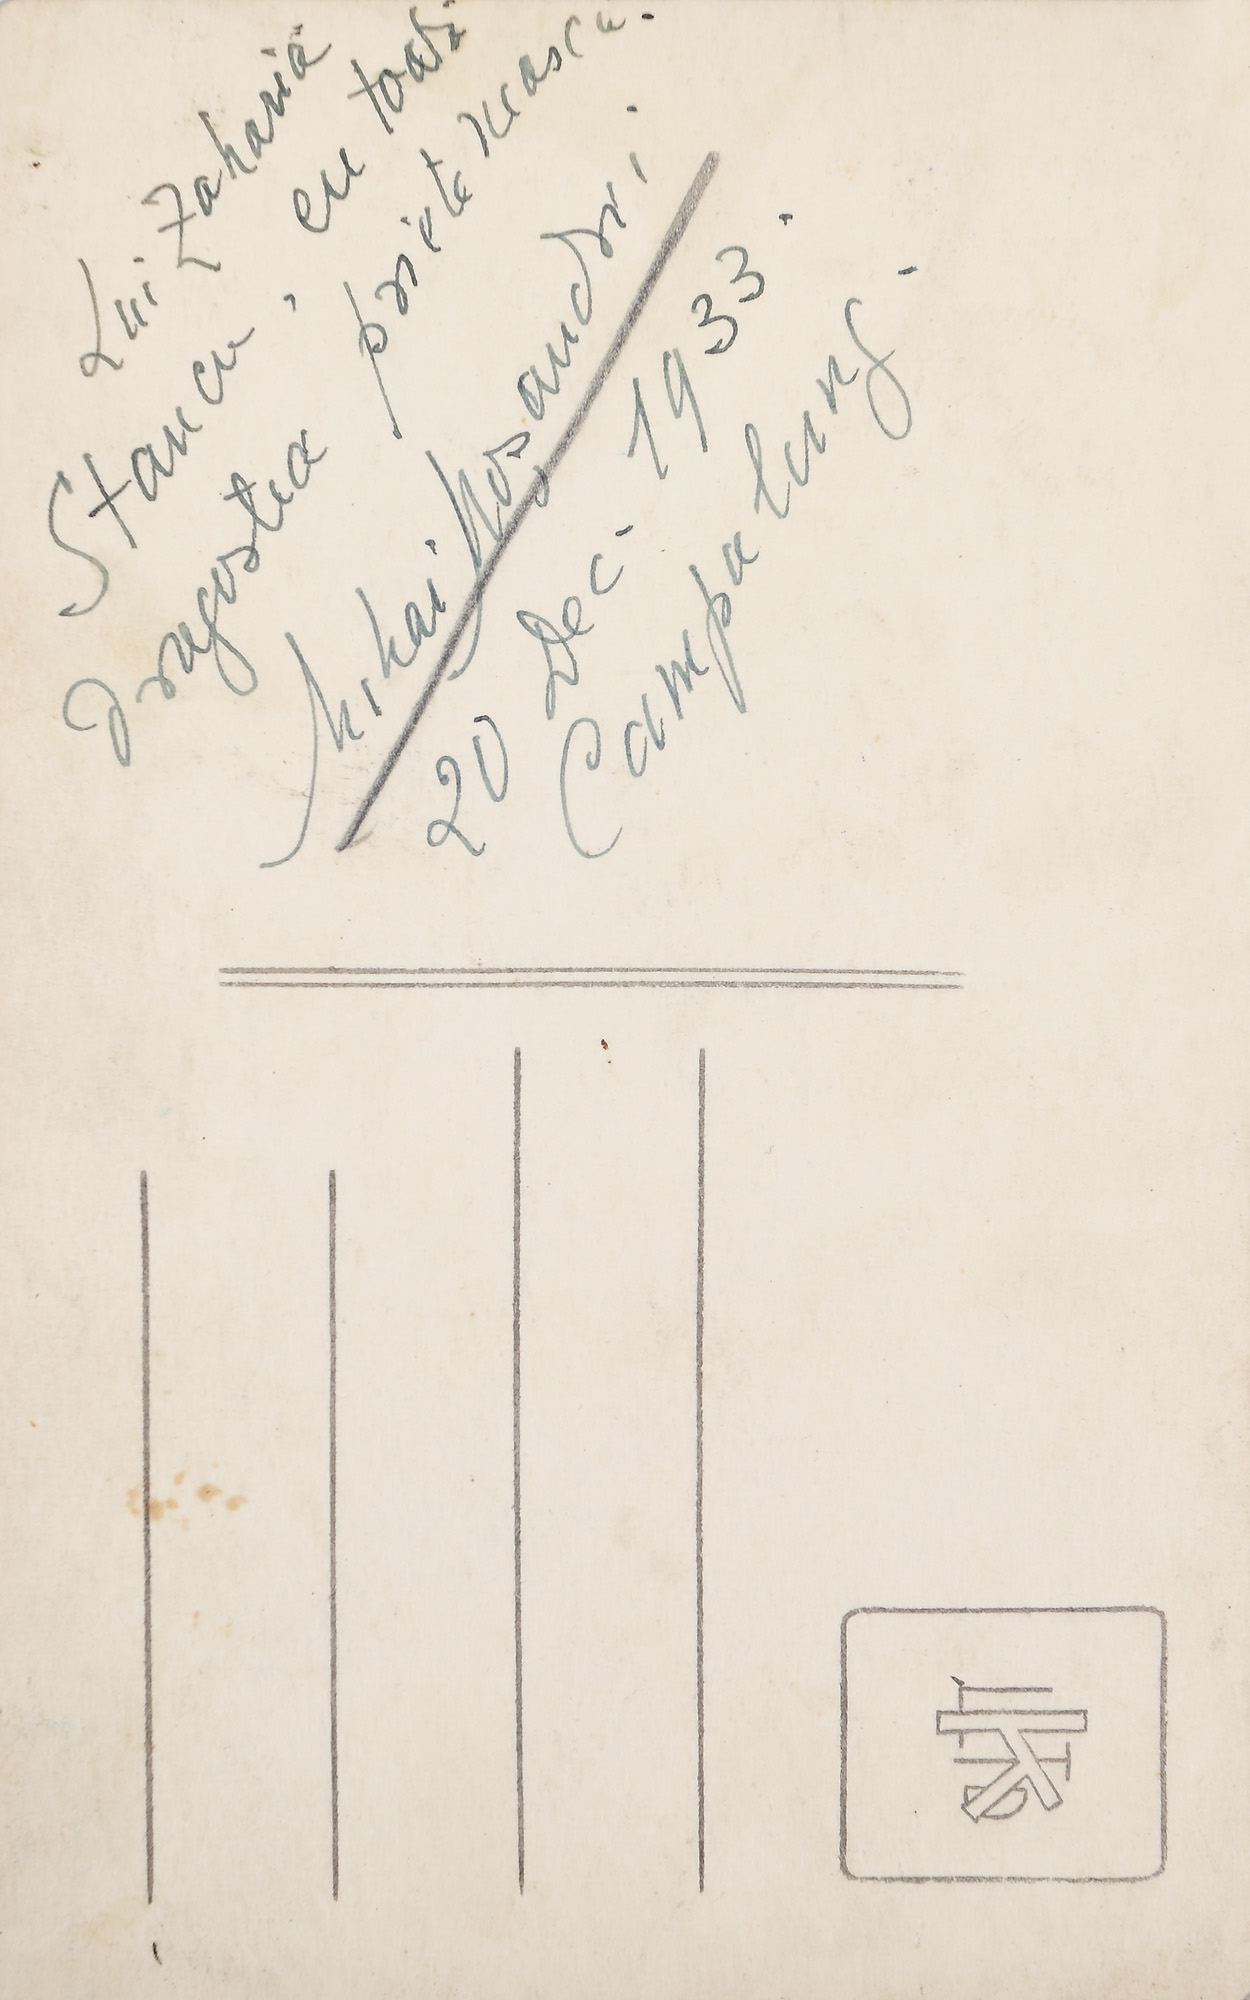 Lui Zaharia
Stancu, cu toată
dragostea prietenească.
Mihai Moșandrei
20 Dec. 1933.
Câmpulung.